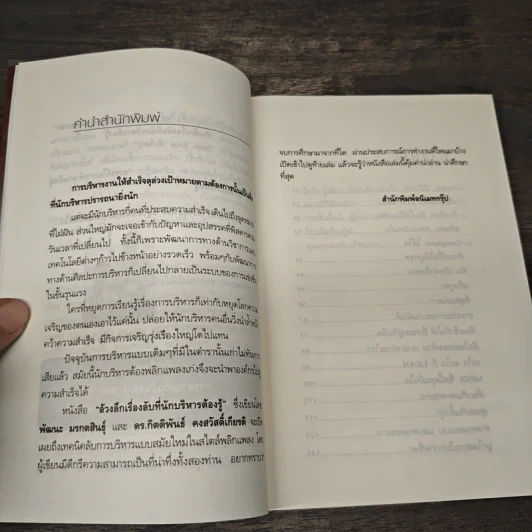 คำนำสำนักพิมพ์
การบริหารงานให้สำเร็จลุล่วงเป้าหมายตามต้องการนั้นเป็นสิ่
ที่นักบริหารปรารถนายิ่งนัก
แต่จะมีนักบริหารกี่คนที่ประสบความสำเร็จ เดินไปถึงจุดหมาย
ที่ใฝ่ฝัน ส่วนใหญ่มักจะเจอเข้ากับปัญหาและอุปสรรคที่พิสดารตาม
วันเวลาที่เปลี่ยนไป ทั้งนี้ก็เพราะพัฒนาการทางด้านวิชาการและ
เทคโนโลยีต่างๆก้าวไปข้างหน้าอย่างรวดเร็ว พร้อมๆกับพัฒนาการ
ทางด้านศิลปะการบริหารก็เปลี่ยนไปกลายเป็นระบบของการแข่งขัน
ในขั้นรุนแรง
ใครที่หยุดการเรียนรู้เรื่องการบริหารก็เท่ากับหยุดโลกความ
เจริญของตนเองเอาไว้แค่นั้น ปล่อยให้นักบริหารคนอื่นวิ่งนำล้ำหน้
คว้าความสำเร็จ มีกิจการเจริญรุ่งเรืองใหญ่โตไปแทน
ปัจจุบันการบริหารแบบเดิมๆที่มีในตำรานั้นเก่าไม่ทันการ
เสียแล้ว สมัยนี้นักบริหารต้องพลิกแพลงเก่งจึงจะนำพาองค์กรไปสู่
ความสำเร็จได้
หนังสือ "ล้วงลึกเรื่องลับที่นักบริหารต้องรู้" ซึ่งเขียนโดย
พัฒนะ มรกตสินธุ์ และ ดร.กิตติพันธ์ คงสวัสดิ์เกียรติ จะเปิด
เผยถึงเทคนิคลับการบริหารแบบสมัยใหม่ในสไตล์พลิกแพลง โดย
ผู้เขียนมีดีกรีความสามารถเป็นที่น่าทึ่งทั้งสองท่าน อยากทราบว่า
จบการศึกษามาจากที่ใด ผ่านประสบการณ์การทำงานที่ไหนมาบ้าง
เปิดเข้าไปดูท้ายเล่ม แล้วจะรู้ว่าหนังสือเล่มนี้คุ้มค่าน่าอ่าน น่าศึกษา
ที่สุด
สำนักพิมพ์อนิเมทกรุ๊ป